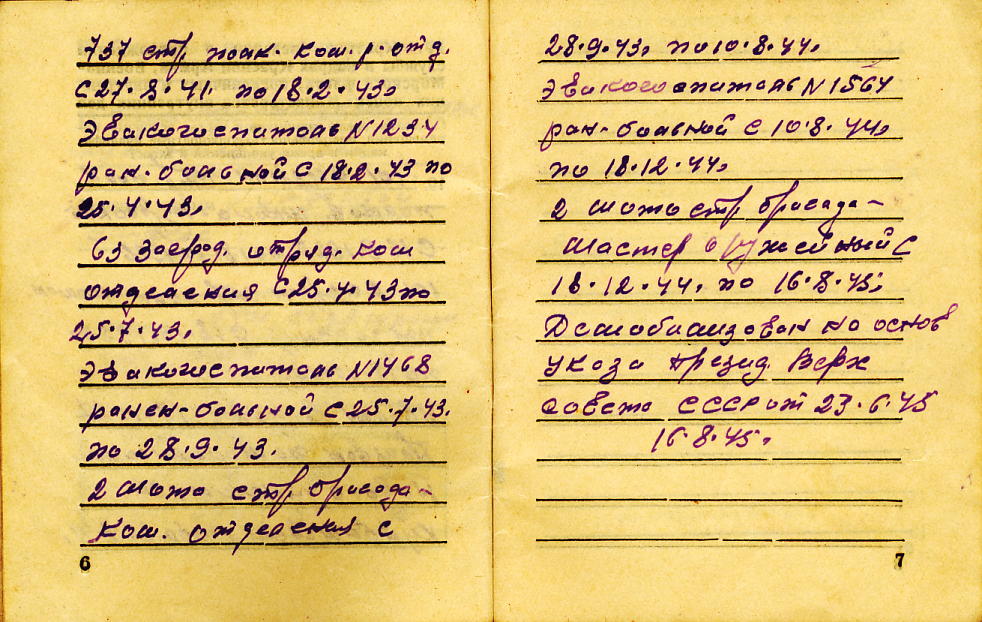 737 стр. полк. ком. р. отд.
с 27.8.41. по 18.2.43.
Эвакогоспиталь N 1234
ран-больной с 18.2.43 по
25.4.43.
63 Заград. отряд. ком
отделения с 25.4.43 по
25.7.43.
Эвакогоспиталь N 1468
ранен-больной с 25.7.43.
по 28.9.43.
2 мото стр бригада-
Ком. отделения с
6
28.9.43. по 10.8.44.
Эвакогоспиталь N 1564
ран-больной с 10.8.44.
по 18.12.44.
2 мото стр бригада-
мастер оружейный с
18.12.44. по 16.8.45.
Демобилизован на основ
указа през­ид. Верх
Совета СССР от 23.6.45
16.8.45.
7